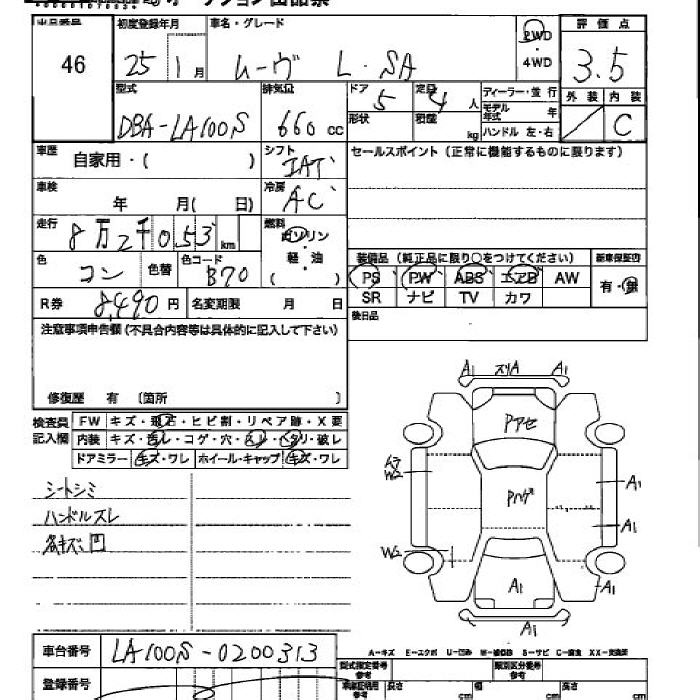 出品番号 初度登録年月 車名・グレード 2WD ・ 4WD 評価点
46 25 1月 ムーヴ L・SA 3.5
型式 排気量 ドア 定員 ディーラー・並行 外装 内装
DBA-LA100S 660 cc 5 4人 モデル年式 年 C
形状 積載 kg ハンドル 左・右
車歴 自家用・( ) シフト IAT セールスポイント(正常に機能するものに限ります)
車検 年 月( 日) 冷房 AC
走行 8万2千053km 燃料 ガソリン・軽・油 ( )
装備品(純正品に限り○をつけてください) 新車保証書
色 コン 色替 色コード B70 PS PW ABS エアB AW 有・無
R券 8,490円 名変期限 月 日 SR ナビ TV カワ
後日品
注意事項申告欄(不具合内容等は具体的に記入して下さい)
修復歴 有 〔箇所 〕
検査員記入欄 FW キズ・飛石・ヒビ割・リペア跡・X要
内装 キズ・汚レ・コゲ・穴・スレ・ヘタリ・破レ
ドアミラー キズ・ワレ ホイール・キャップ キズ・ワレ
シートシミ
ハンドルスレ
A1 スリA A1
Pアセ
W2 Pハゲ A1
A1
W2 A1 A1
A1
車台番号 LA100S-0200313
A-キズ E-エクボ U-凹み S-サビ C-腐食 XX-交換済
登録番号 型式指定番号 参考 類別区分番号 参考
長さ cm 幅 cm 高さ cm